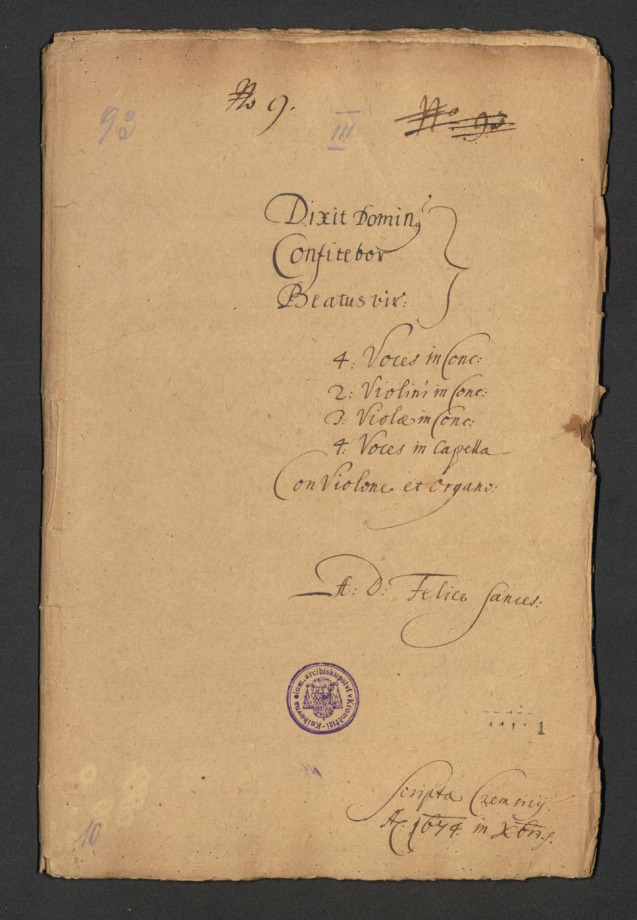 93
No 9.
III
No 93
Dixit Dominꝰ
Confitebor
Beatus vir:
4: Voces in Conc:
2: Violini in Conc:
3: Violæ in Conc:
4: Voces in Capella
Con Violone et Organo:
A: D: Felice Sances:
Knihovna olom. arcibiskupství v Kroměříži
1
Scripta Cremsirij
Aº 1674. in Xbris
10